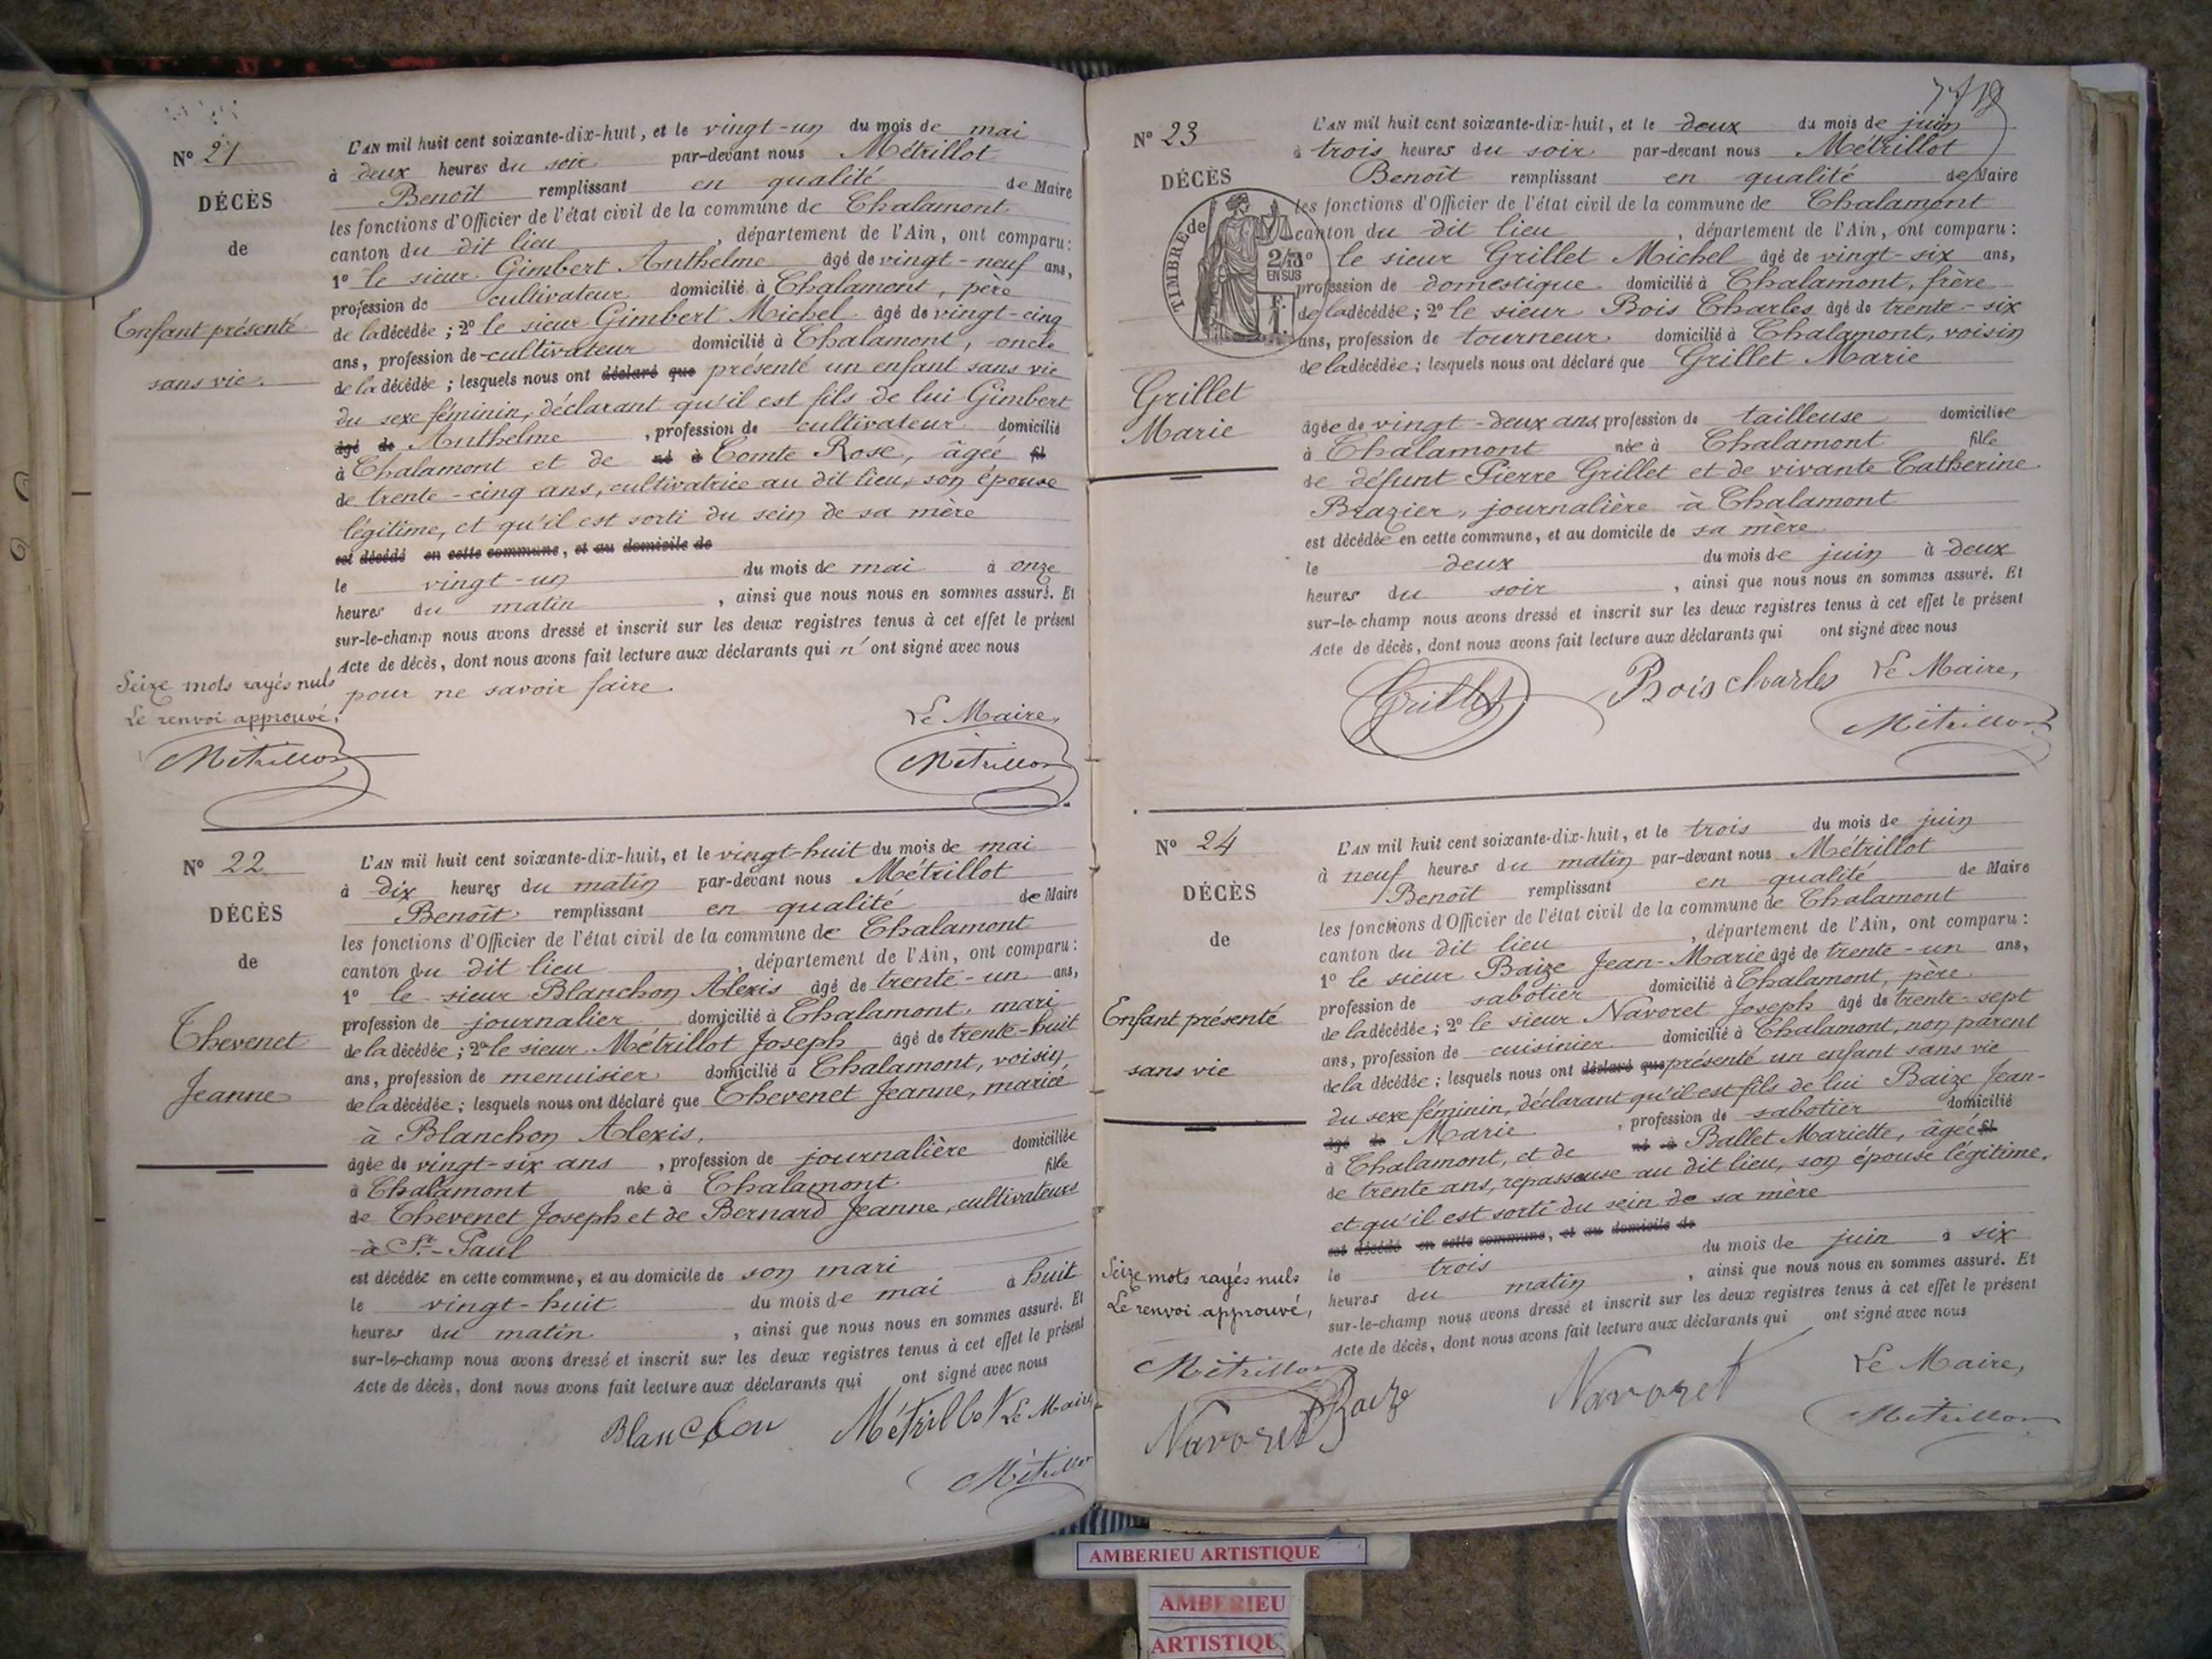 N° 21
DÉCÈS
de
Enfant présenté
sans vie.
L'AN mil huit cent soixante-dix-huit, et le vingt-un du mois de mai
à deux heures du soir par-devant nous Métrillot
Benoît remplissant en qualité de Maire
les fonctions d'Officier de l'état civil de la commune de Chalamont
canton du dit lieu, département de l'Ain, ont comparu :
1° le sieur Gimbert Anthelme âgé de vingt-neuf ans,
profession de cultivateur domicilié à Chalamont, père
de la décédée ; 2° le sieur Gimbert Michel âgé de vingt-cinq
ans, profession de cultivateur domicilié à Chalamont, oncle
de la décédée ; lesquels nous ont déclaré que présenté un enfant sans vie
du sexe féminin, déclarant qu'il est fils de lui Gimbert
âgé de Anthelme, profession de cultivateur domicilié
à Chalamont et de né à Comte Rose, âgée fil
de trente-cinq ans, cultivatrice au dit lieu, son épouse
légitime, et qu'il est sorti du sein de sa mère
est décédé en cette commune, et au domicile de
le vingt-un du mois de mai à onze
heures du matin, ainsi que nous nous en sommes assuré. Et
sur-le-champ nous avons dressé et inscrit sur les deux registres tenus à cet effet le présent
Acte de décès, dont nous avons fait lecture aux déclarants qui n'ont signé avec nous
pour ne savoir faire.
Seize mots rayés nuls
Le renvoi approuvé,
Métrillot
Le Maire,
Métrillot
N° 22
DÉCÈS
de
Thevenet
Jeanne
L'AN mil huit cent soixante-dix-huit, et le vingt-huit du mois de mai
à dix heures du matin par-devant nous Métrillot
Benoît remplissant en qualité de Maire
les fonctions d'Officier de l'état civil de la commune de Chalamont
canton du dit lieu, département de l'Ain, ont comparu :
1° le sieur Blanchon Alexis âgé de trente-un ans,
profession de journalier domicilié à Chalamont, mari
de la décédée ; 2° le sieur Métrillot Joseph âgé de trente-huit
ans, profession de menuisier domicilié à Chalamont, voisin
de la décédée ; lesquels nous ont déclaré que Thevenet Jeanne, mariée
à Blanchon Alexis,
âgée de vingt-six ans, profession de journalière domiciliée
à Chalamont née à Chalamont fille
de Thevenet Joseph et de Bernard Jeanne, cultivateurs
à St-Paul
est décédée en cette commune, et au domicile de son mari
le vingt-huit du mois de mai à huit
heures du matin, ainsi que nous nous en sommes assuré. Et
sur-le-champ nous avons dressé et inscrit sur les deux registres tenus à cet effet le présent
Acte de décès, dont nous avons fait lecture aux déclarants qui ont signé avec nous
Blanchon Métrillot Le Maire
Métrillot
N° 23
DÉCÈS
de
TIMBRE
2/10
EN SUS
Grillet
Marie
L'AN mil huit cent soixante-dix-huit, et le deux du mois de juin
à trois heures du soir par-devant nous Métrillot
Benoît remplissant en qualité de Maire
les fonctions d'Officier de l'état civil de la commune de Chalamont
canton du dit lieu, département de l'Ain, ont comparu :
1° le sieur Grillet Michel âgé de vingt-six ans,
profession de domestique domicilié à Chalamont, frère
de la décédée ; 2° le sieur Bois Charles âgé de trente-six
ans, profession de tourneur domicilié à Chalamont, voisin
de la décédée ; lesquels nous ont déclaré que Grillet Marie
âgée de vingt-deux ans, profession de tailleuse domiciliée
à Chalamont née à Chalamont fille
de défunt Pierre Grillet et de vivante Catherine
Brazier, journalière à Chalamont
est décédée en cette commune, et au domicile de sa mère
le deux du mois de juin à deux
heures du soir, ainsi que nous nous en sommes assuré. Et
sur-le-champ nous avons dressé et inscrit sur les deux registres tenus à cet effet le présent
Acte de décès, dont nous avons fait lecture aux déclarants qui ont signé avec nous
Grillet Bois charles Le Maire,
Métrillot
N° 24
DÉCÈS
de
Enfant présenté
sans vie
L'AN mil huit cent soixante-dix-huit, et le trois du mois de juin
à neuf heures du matin par-devant nous Métrillot
Benoît remplissant en qualité de Maire
les fonctions d'Officier de l'état civil de la commune de Chalamont
canton du dit lieu, département de l'Ain, ont comparu :
1° le sieur Baize Jean-Marie âgé de trente-un ans,
profession de sabotier domicilié à Chalamont, père
de la décédée ; 2° le sieur Navoret Joseph âgé de trente-sept
ans, profession de cuisinier domicilié à Chalamont, non parent
de la décédée ; lesquels nous ont déclaré que présenté un enfant sans vie
du sexe féminin, déclarant qu'il est fils de lui Baize Jean-
âgé de Marie, profession de sabotier domicilié
à Chalamont, et de né à Ballet Mariette, âgée fil
de trente ans, repasseuse au dit lieu, son épouse légitime,
et qu'il est sorti du sein de sa mère
est décédé en cette commune, et au domicile de
le trois du mois de juin à six
heures du matin, ainsi que nous nous en sommes assuré. Et
sur-le-champ nous avons dressé et inscrit sur les deux registres tenus à cet effet le présent
Acte de décès, dont nous avons fait lecture aux déclarants qui ont signé avec nous
Seize mots rayés nuls
Le renvoi approuvé,
Métrillot
Navoret Baize
Navoret
Le Maire,
Métrillot
AMBERIEU ARTISTIQUE
AMBERIEU
ARTISTIQUE